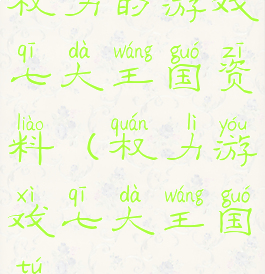 权力的游戏
qī dà wáng guó zī
七大王国资
liào quán lì yóu
料(权力游
xì qī dà wáng guó
戏七大王国
tú